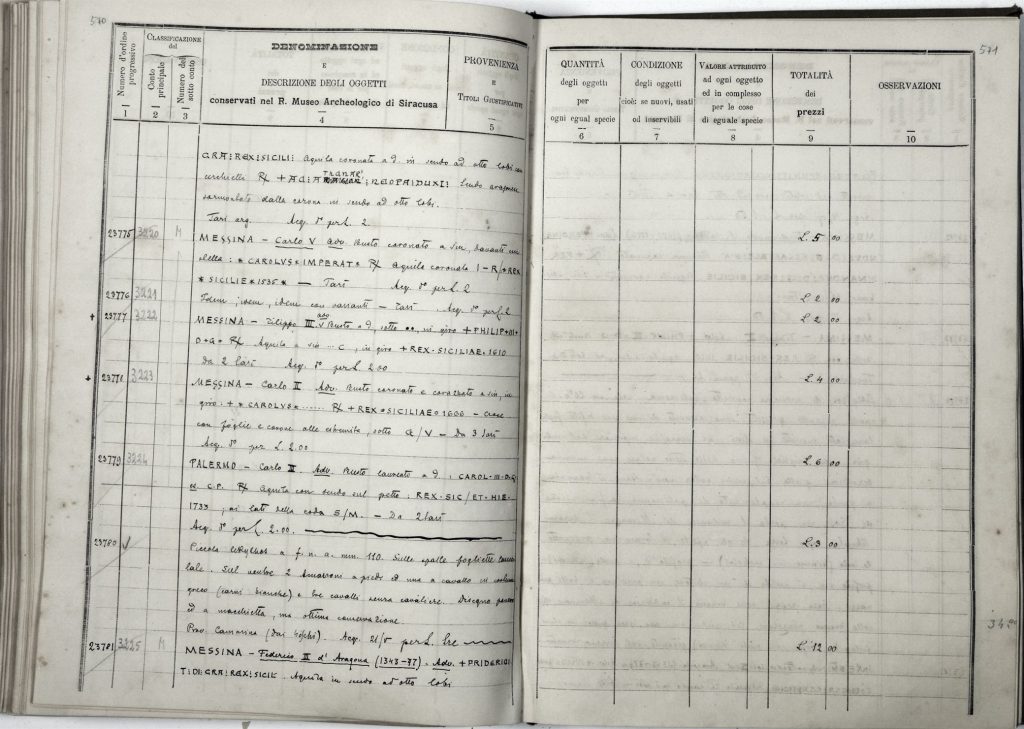 570
Numero d'ordine progressivo
1
CLASSIFICAZIONE del
Conto principale
2
Numero del sotto conto
3
DENOMINAZIONE
E
DESCRIZIONE DEGLI OGGETTI
conservati nel R. Museo Archeologico di Siracusa
4
PROVENIENZA
E
TITOLI GIUSTIFICATIVI
5
GRA:REX:SICILI: Aquila coronata a d. in scudo ad otto lobi con
cerchietti
Scudo aragonese
sormontato dalla corona in scudo ad otto lobi.
Tarì arg. Acq. per L. 2
23775 3220 M
MESSINA – Carlo V Adv. Busto coronato a sin, davanti una
stella : * CAROLVS * IMPERAT * ℞ Aquila coronata I - R/*REX
* SICILIE * 1535 * — Tarì Acq. per L. 2
23776 3221
Idem, idem, idem con varianti – Tarì. Acq. per L. 2
+ 23777 3222
MESSINA – Filippo III Adv. Busto a d, sotto in giro + PHILIP
D * G * ℞ Aquila a sin ... C, in giro + REX · SICILIAE · 1610
Da 2 tarì Acq. per L 2.00
+ 23778 3223
MESSINA – Carlo II Adv. Busto coronato e corazzato a sin, in
giro. + * CAROLVS * ........ ℞ + REX * SICILIAE 1666 – Croce
con foglie e corone alle estremità, sotto / V – Da 3 tarì
Acq. per L. 2.00
23779 3224
PALERMO – Carlo Adv. Busto laureato a d. CAROL · III · D · G ·
C.P. ℞ Aquila con scudo sul petto : REX · SIC / ET · HIE ·
1733, ai lati della coda S/M. – Da 2 tarì
Acq. per L 2.00.
23780 ✓
Piccola lekythos a f. n. a. mm. 110. Sulle spalle fogliette
Sul ventre 2 Amazzoni a piedi ed una a cavallo in costume
greco (carni bianche) e tre cavalli senza cavaliere. Disegno
ed a macchietta, ma ottima conservazione.
Prov. Camarina (dai ). Acq. 21/5 per L. tre
23781 3225 M
MESSINA – Federico III d' Aragona (1343-77). Adv. + FRIDERICI
T:DI:GRA:REX:SICIL. Aquila in scudo ad otto lobi
571
QUANTITÀ
degli oggetti
per
ogni egual specie
6
CONDIZIONE
degli oggetti
cioè: se nuovi, usati
od inservibili
7
VALORE ATTRIBUITO
ad ogni oggetto
ed in complesso
per le cose
di eguale specie
8
TOTALITÀ
dei
prezzi
9
OSSERVAZIONI
10
L. 5 00
L. 2 00
L. 2 00
L. 4 00
L. 6 00
L. 3 00
L. 12 00